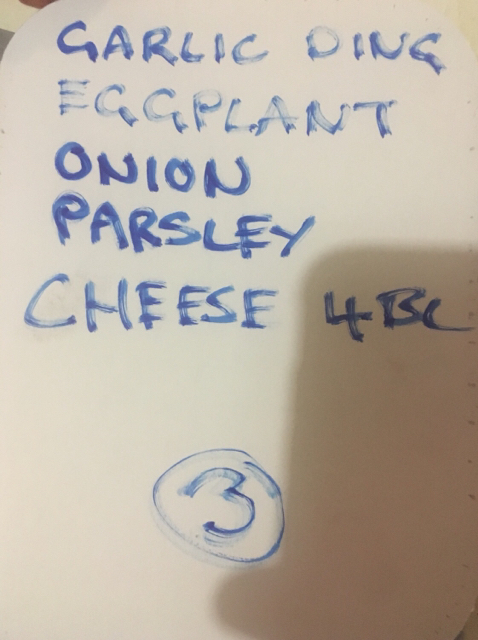 GARLIC DING
EGGPLANT
ONION
PARSLEY
CHEESE 4BC
3